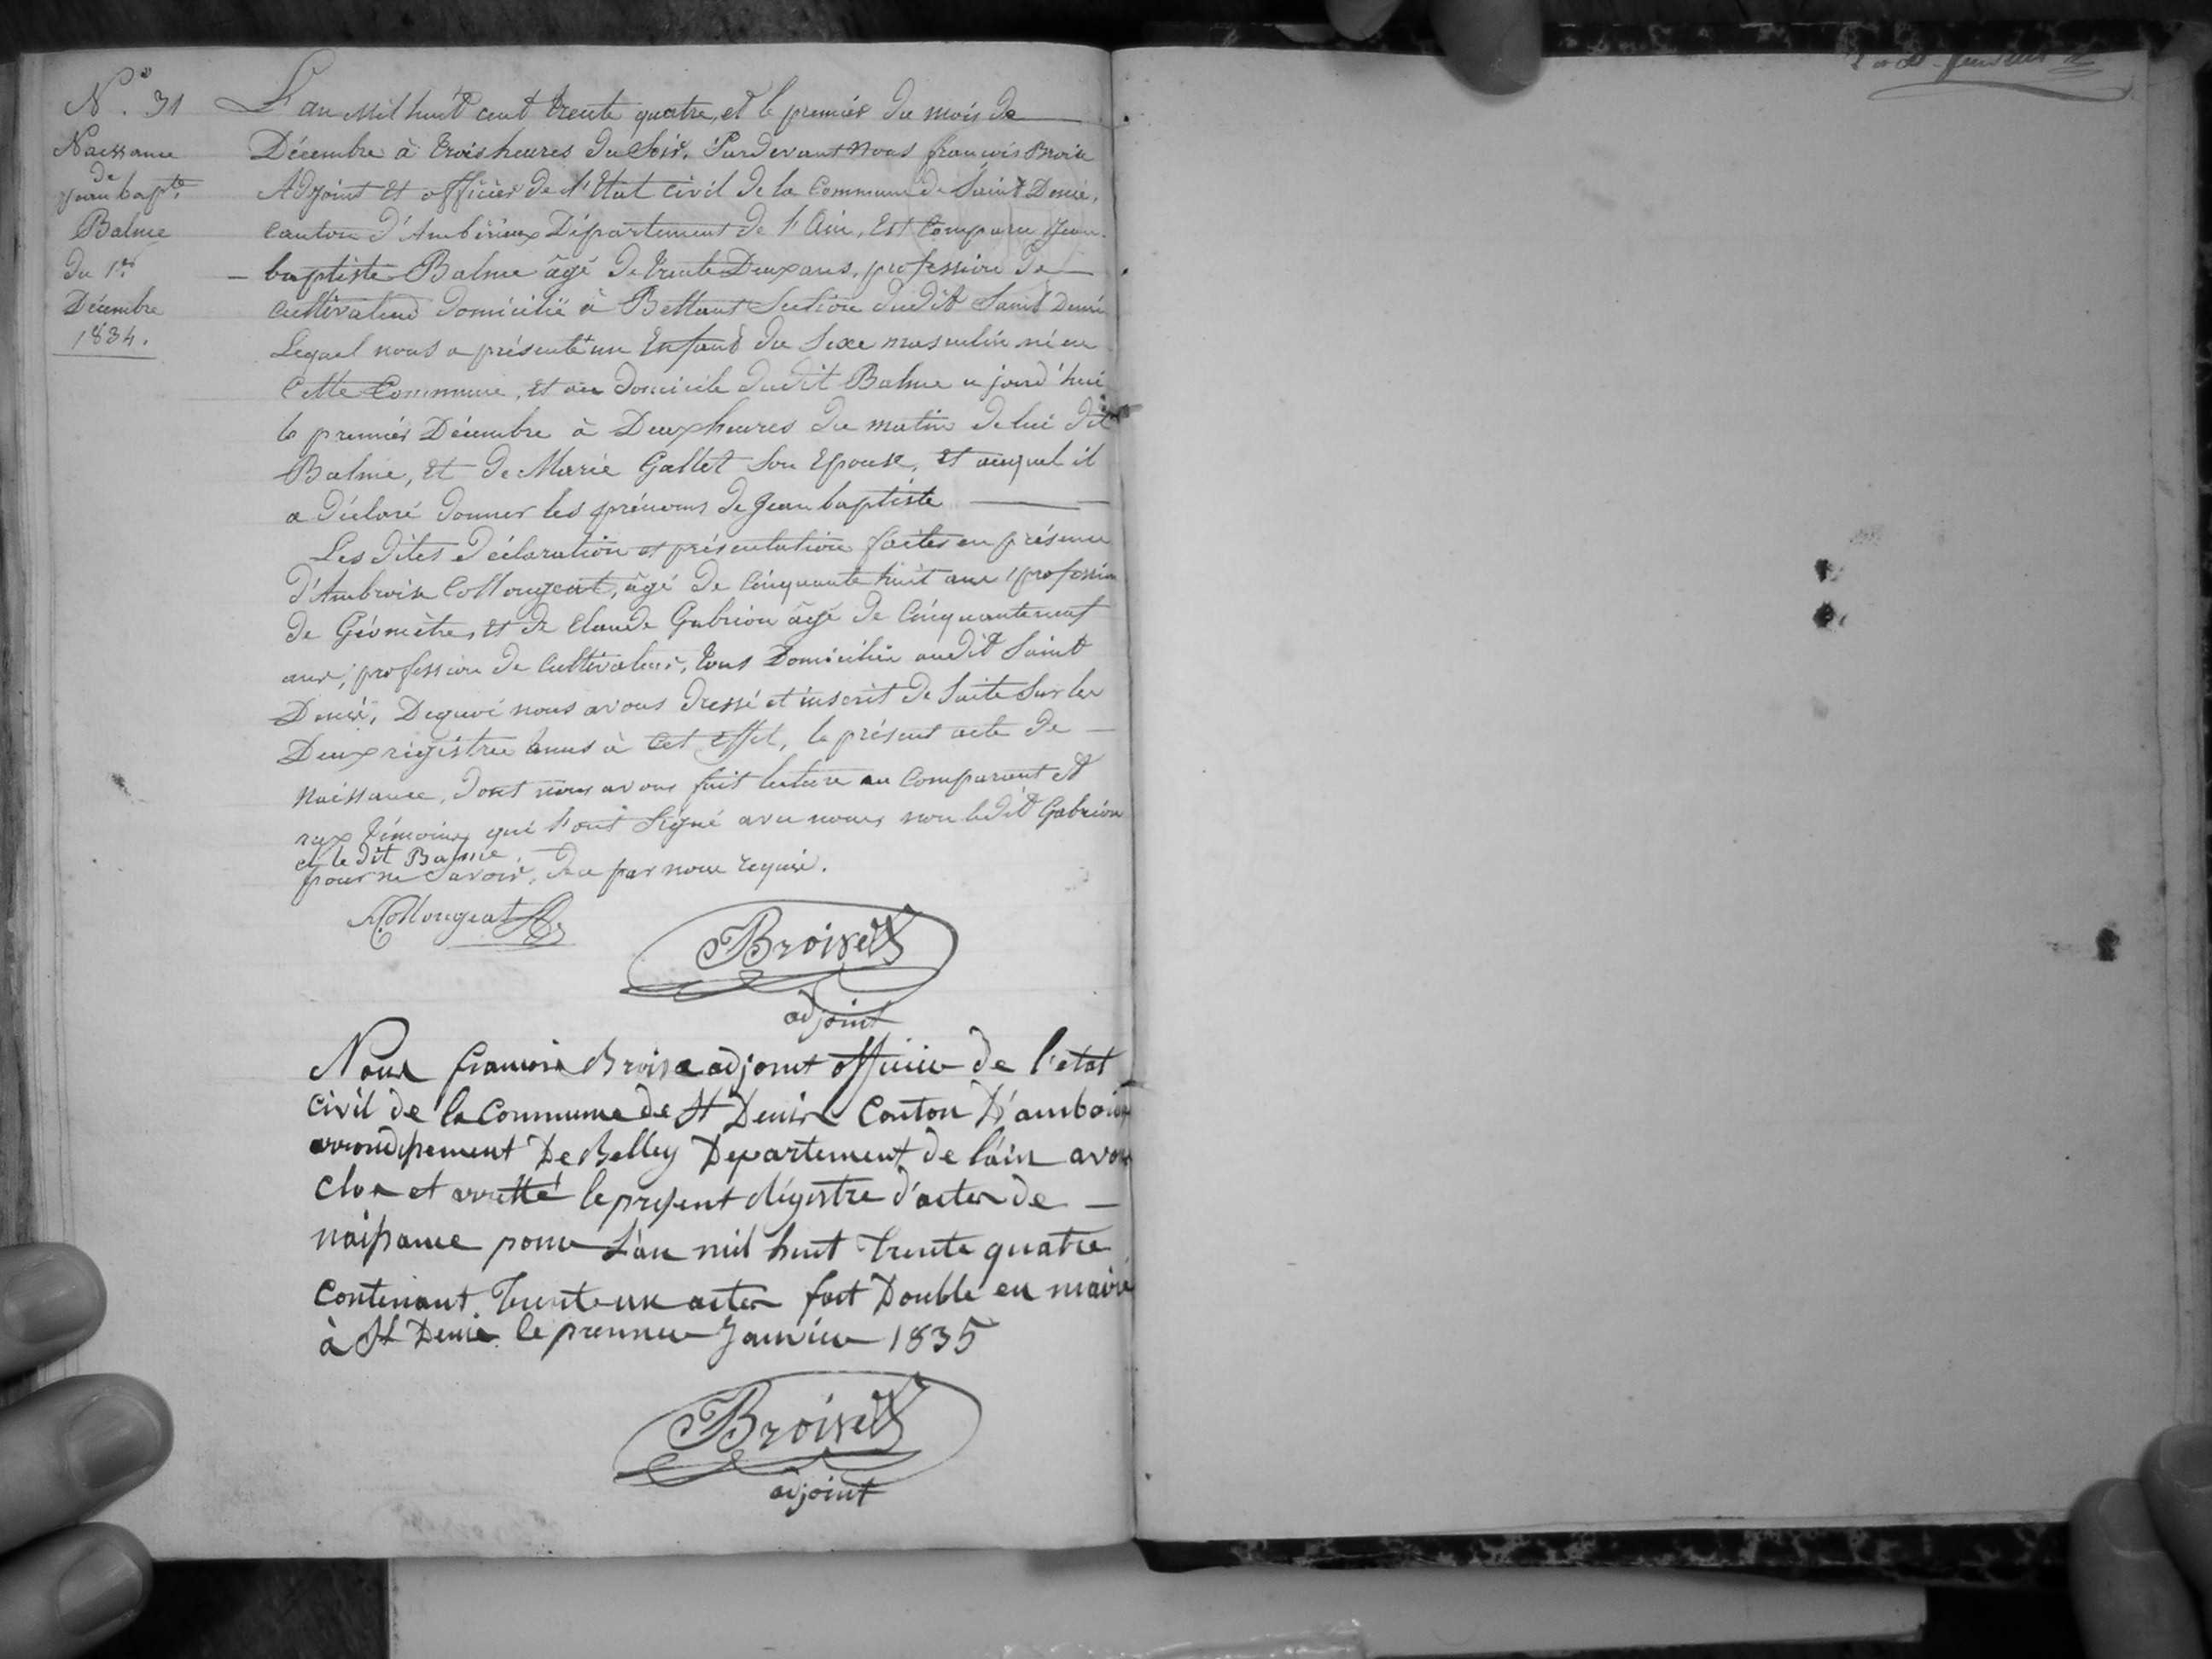 N.° 31
Naissance
de
jean bapte.
Balme
du 1er
Décembre
1834.
L'an mil huit cent trente quatre, et le premier du mois de
Décembre à trois heures du Soir. Pardevant nous françois Broise
Adjoint et officier de l'Etat civil de la Commune de Saint Denis,
canton d'Ambérieux Département de l'Ain, Est comparu Jean-
baptiste Balme âgé de trente Deux ans, profession de
cultivateur domicilié à Bettant Section dudit Saint Denis
Lequel nous a présenté un Enfant du Sexe masculin né en
Cette Commune, et au domicile dudit Balme a jourd'hui
le premier Décembre à Deux heures du matin de lui dit
Balme, et de Marie Gallet son Epouse, et auquel il
a déclaré donner les prénoms de Jean baptiste
Les dites déclaration et présentation faites en présence
d'Ambroise Collongeat, âgé de Cinquante huit ans, profession
de Géomètre, et de Claude Gabrion âgé de Cinquante neuf
ans, profession de Cultivateur, tous Domiciliés audit Saint
Denis, Dequoi nous avons dressé et inscrit de suite sur les
Deux registres tenus à cet effet, le présent acte de
Naissance, dont nous avons fait lecture au Comparant et
aux témoins, qui l'ont Signé avec nous, non ledit Gabrion
et le dit Balme
pour ne Savoir, de ce par nous requis.
Collongeat
Broise
adjoint
Nous francois Broise adjoint officier de l'etat
civil de la Commune de St Denis Canton D'ambérieux
arrondissement De Belley Departement de l'ain avons
clos et arretté le present régistre d'actes de
naissance pour L'an mil huit trente quatre
contenant trente un actes fait Double en mairie
à St Denis le premier Janvier 1835
Broise
adjoint